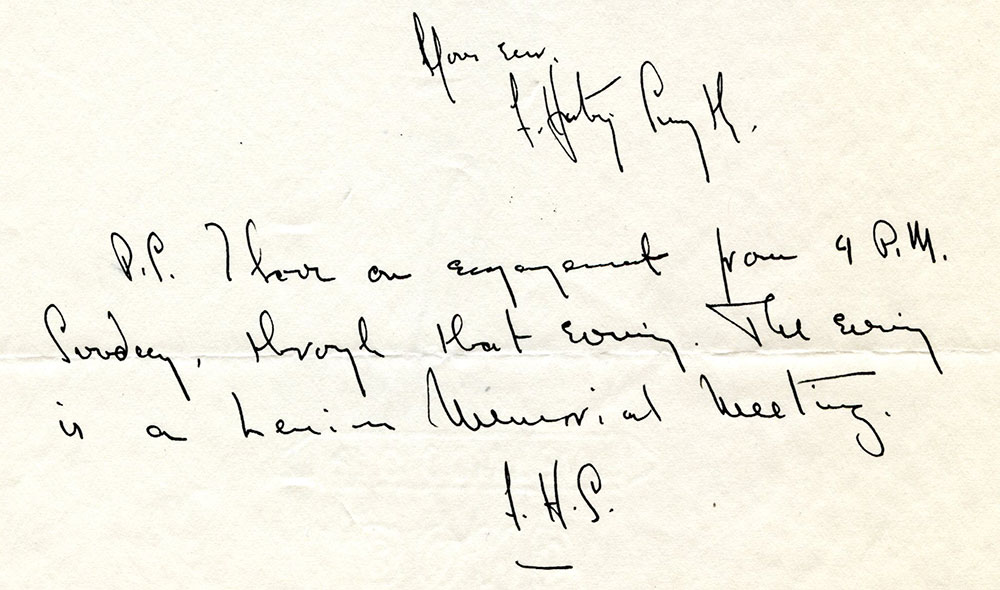 Yours ever.
F. Hartley Smyth.
P.S. I have an engagement from 4 P.M.
Sunday, through that evening. The evening
is a Lenin Memorial Meeting.
F.H.S.